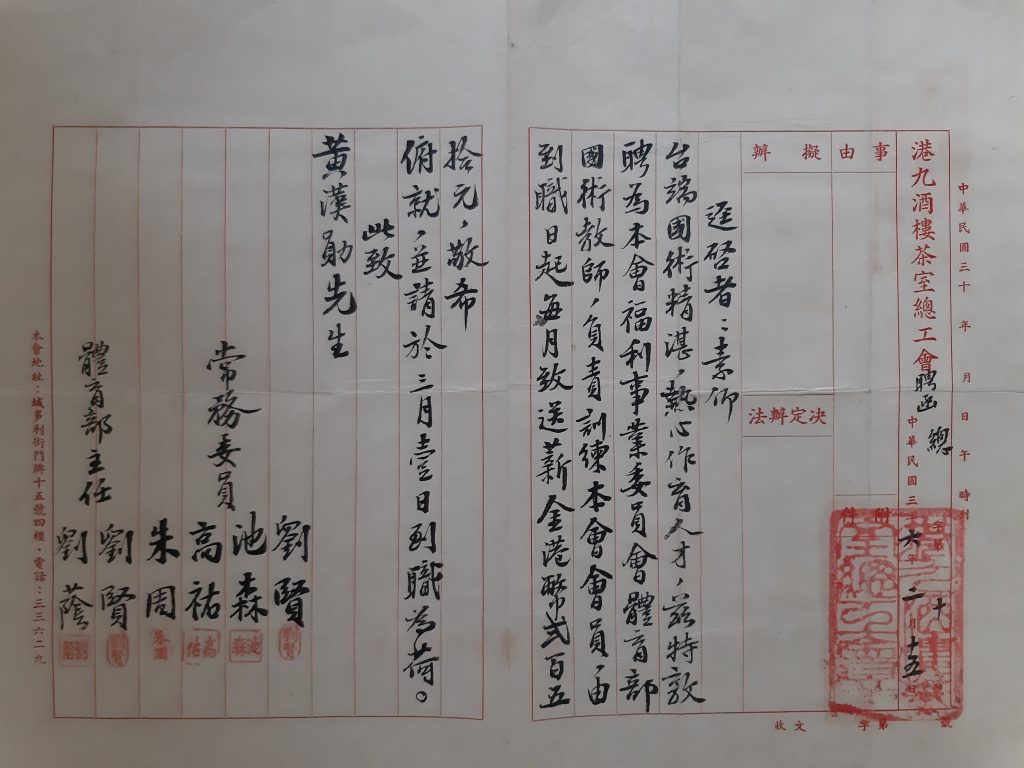 中華民國三十 年 月 日 午 時刊
港九酒樓茶室總工會聘函 總字第十 號
中華民國三十六年二月十五日
事由
附件
擬辦
決定辦法
逕啓者：素仰
台端國術精湛，熱心作育人才，茲特敦
聘為本會福利事業委員會體育部
國術教師，負責訓練本會會員，由
到職日起每月致送薪金港幣弍百五
收文 字第 號
拾元，敬希
俯就，並請於三月壹日到職為荷。
此致
黃漢勛先生
常務委員
劉賢
池森
高祐
朱周
劉賢
體育部主任
劉蔭
本會地址：域多利街門牌十五號四樓・電話：三三六二九